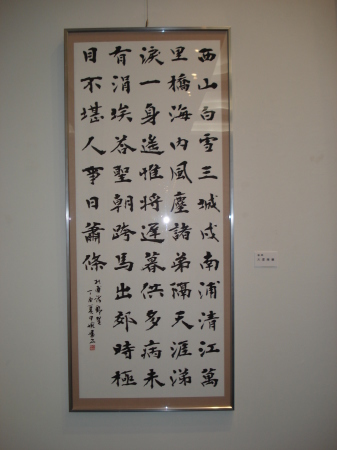 西山白雪三城戍南浦清江萬
里橋海內風塵諸弟隔天涯涕
淚一身遙惟將遲暮供多病未
有涓埃答聖朝跨馬出郊時極
目不堪人事日蕭條
杜甫詩野望